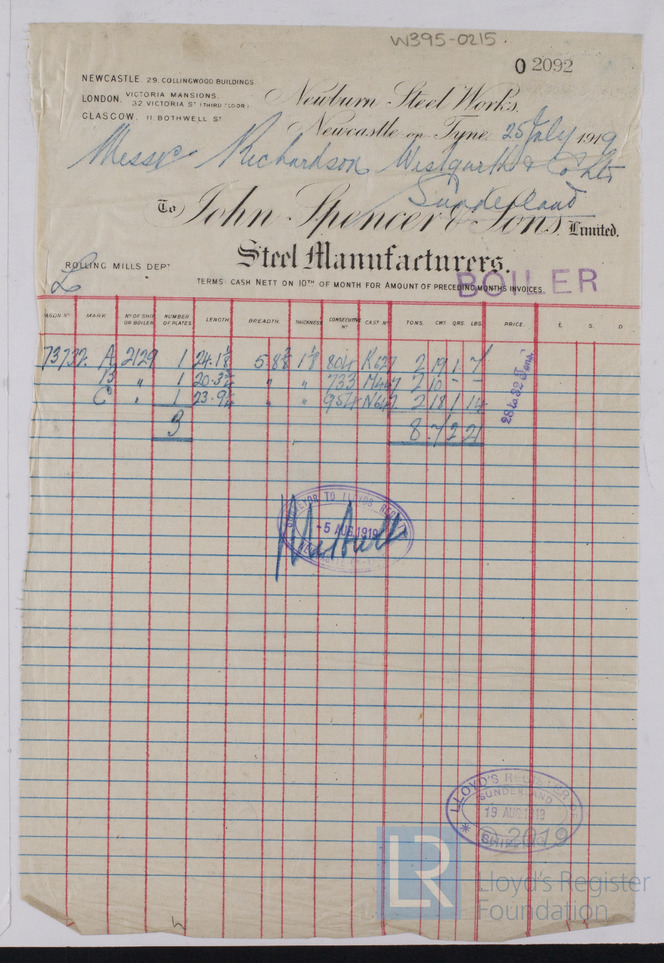 W395-0215.
O 2092
NEWCASTLE. 29. COLLINGWOOD BUILDINGS
LONDON. VICTORIA MANSIONS, 32 VICTORIA ST (THIRD FLOOR)
GLASGOW, 11. BOTHWELL ST
Newburn Steel Works,
Newcastle on Tyne, 25 July 1919
Messrs Richardson Westgarth & Co Ltd
Sunderland
To John Spencer & Sons, Limited.
Steel Manufacturers.
ROLLING MILLS DEPT
L
TERMS: CASH NETT ON 10TH OF MONTH FOR AMOUNT OF PRECEDING MONTHS INVOICES.
BOILER
WAGON No MARK No OF SHIP OR BOILER NUMBER OF PLATES LENGTH BREADTH THICKNESS CONSECUTIVE No CAST No TONS. CWT QRS. LBS. PRICE £ S. D
73732 A 2129 1 24.1 5.8 1⅛ 804 K627 2 19 1 7
B " 1 20.3 " " 733 2 10 - -
C " 1 23.9 " " 954 N647 2 18 1 14
3 8 7 2 21
28 to 32 Tons.
SURVEYOR TO LLOYDS REGISTER
-5 AUG 1919
LLOYD'S REGISTER
SUNDERLAND
19 AUG 1919
SHIPPING
© 2019
LR
Lloyd's Register
Foundation